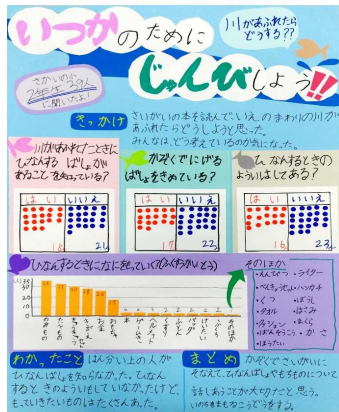 いつかのために
川があふれたら
どうする??
じゅんびしよう!!
2年生39人
に聞いたよ!
きっかけ
さいがいの本を読んで、いえのまわりの川が
あふれたらどうしようと思った。
みんなは、どう考えているのか気になった。
川があふれたときに
ひなんするばしょが
あることを知っている?
はい いいえ
18 21
かぞくでにげる
ばしょをきめている?
はい いいえ
17 22
ひなんするときの
よういはしてある?
はい いいえ
16 23
ひなんするときになにをもっていく?(ふくすうかいとう)
そのほか
・えんぴつ ・ライター
・べんきょうどうぐ ・ハンカチ
・くつ ・ぼうし
・タオル ・はぶらし
・クッション ・まくら
・ばんそうこう ・かさ
・ほうたい
わかったこと
はん分い上の人が
ひなんばしょを知らなかった。ひなん
するときのよういもしていなかったけど、
もっていきたいものはたくさんあった。
まとめ
かぞくでさいがいに
そなえて、ひなんばしょやもちものについて
話しあうことが大切だと思う。
いのちをまもるこうどうをする。